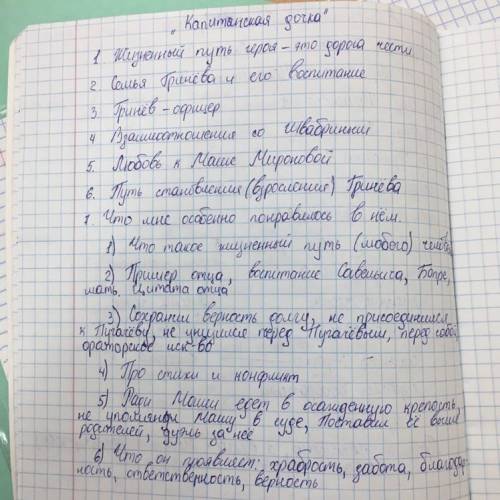 "Капитанская дочка"
1. Жизненный путь героя - это дорога чести
2. Семья Гринёва и его воспитание
3. Гринёв - офицер
4 Взаимоотношения со Швабриным
5. Любовь к Маше Мироновой
6. Путь становления (взросления) Гринёва
7. Что мне особенно понравилось в нём.
1) Что такое жизненный путь (любого)
2) Пример отца, воспитание Савельича, Бопре,
мать. Цитата отца
3) Сохранил верность долгу, не присоединился
к Пугачёву, не унизился перед Пугачёвым, перед собой
ораторское иск-во
4) Про стихи и конфликт
5) Ради Маши едет в осажденную крепость,
не упомянул Машу в суде, поставил её выше
родителей, дуэль за неё
6) Что он проявляет: храбрость, забота, благодар-
ность, ответственность, верность